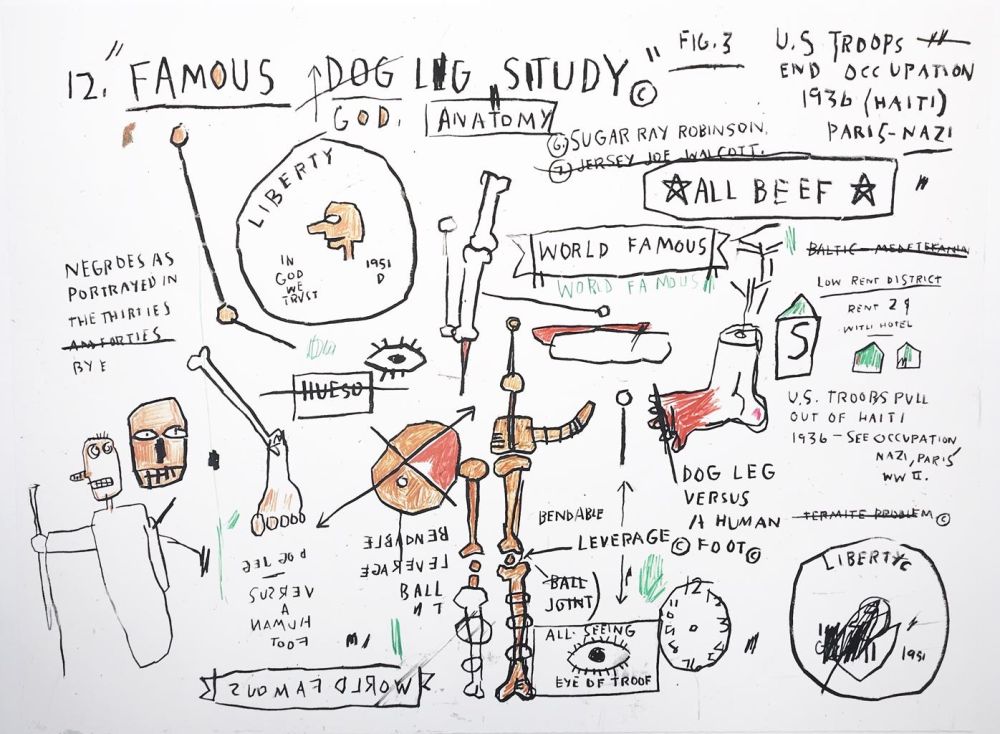 12. "FAMOUS DOG LEG STUDY" ©
FIG. 3
GOD.
ANATOMY
U.S TROOPS
END OCCUPATION
1936 (HAITI)
PARIS-NAZI
⑥ SUGAR RAY ROBINSON.
⑦ JERSEY JOE WALCOTT.
☆ALL BEEF☆
LIBERTY
IN
GOD
WE
TRVST
1951
D
WORLD FAMOUS
WORLD FAMOUS
LOW RENT DISTRICT
RENT 29
WITH HOTEL
S
NEGROES AS
PORTRAYED IN
THE THIRTIES
BY E
HUESO
U.S. TROOBS PULL
OUT OF HAITI
1936 - SEE OCCUPATION
NAZI, PARIS
WW II.
TERMITE PROBLEM ©
DOG LEG
VERSUS
A HUMAN
FOOT ©
BENDABLE
LEVERAGE ©
BALL
JOINT)
BENDABLE
LEVERAGE
BALL
DOG LEG
VERSUS
A
HUMAN
FOOT
ALL-SEEING
EYE OF TROOF
12
LIBERTY
1951
WORLD FAMOUS